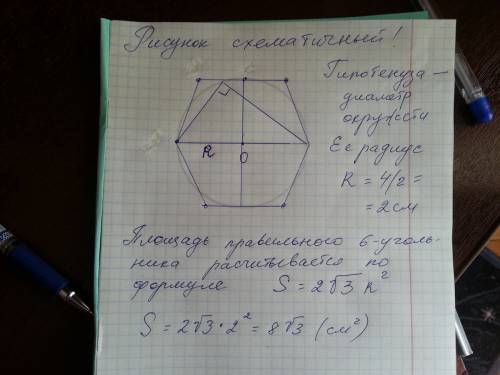 Рисунок схематичный!
Гипотенуза —
диаметр
окружности
Ее радиус
R = 4/2 =
= 2см
R
O
Площадь правильного 6-уголь-
ника расчитывается по
формуле S = 2√3 R²
S = 2√3 · 2² = 8√3 (см²)